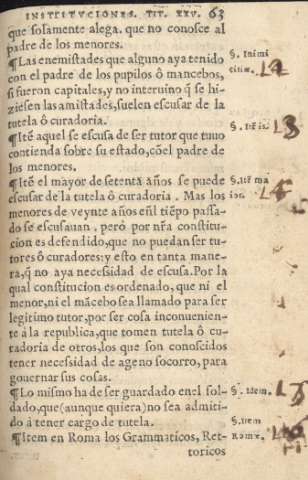 INSTITVCIONES. TIT. XXV. 63
que solamente alega. que no conosce al
padre de los menores.
¶Las enemistades que alguno aya tenido
con el padre de los pupilos ô mancebos,
si fueron capitales, y no interuino q̃ se hi-
ziesen las amistades, suelen escusar de la
tutela ô curadoria.
§. Inimi
citiæ.
¶Itẽ aquel se escusa de ser tutor que tuuo
contienda sobre su estado, cõel padre de
los menores.
§. Itẽ is.
¶Itẽ el mayor de setenta años se puede
escusar de la tutela ô curadoria. Mas los
menores de veynte años eñl tiẽpo passa-
do se escusauan. però por nr̃a constitu-
cion es defendido, que no puedan ser tu-
tores ô curadores: y esto en tanta mane-
ra, q̃ no aya necessidad de escusa. Por la
qual constitucion es ordenado, que ni el
menor, ni el mãcebo sea llamado para ser
legitimo tutor, por ser cosa inconuenien-
te à la republica, que tomen tutela ô cu-
radoria de otros, los que son conoscidos
tener necessidad de ageno socorro, para
gouernar sus cosas.
§. Itẽ ma
ior.
¶Lo mismo ha de ser guardado enel sol-
dado, que (aunque quiera) no sea admiti-
do à tener cargo de tutela.
§. Idem.
¶Item en Roma los Grammaticos, Ret-
toricos
§. Item
Romæ.